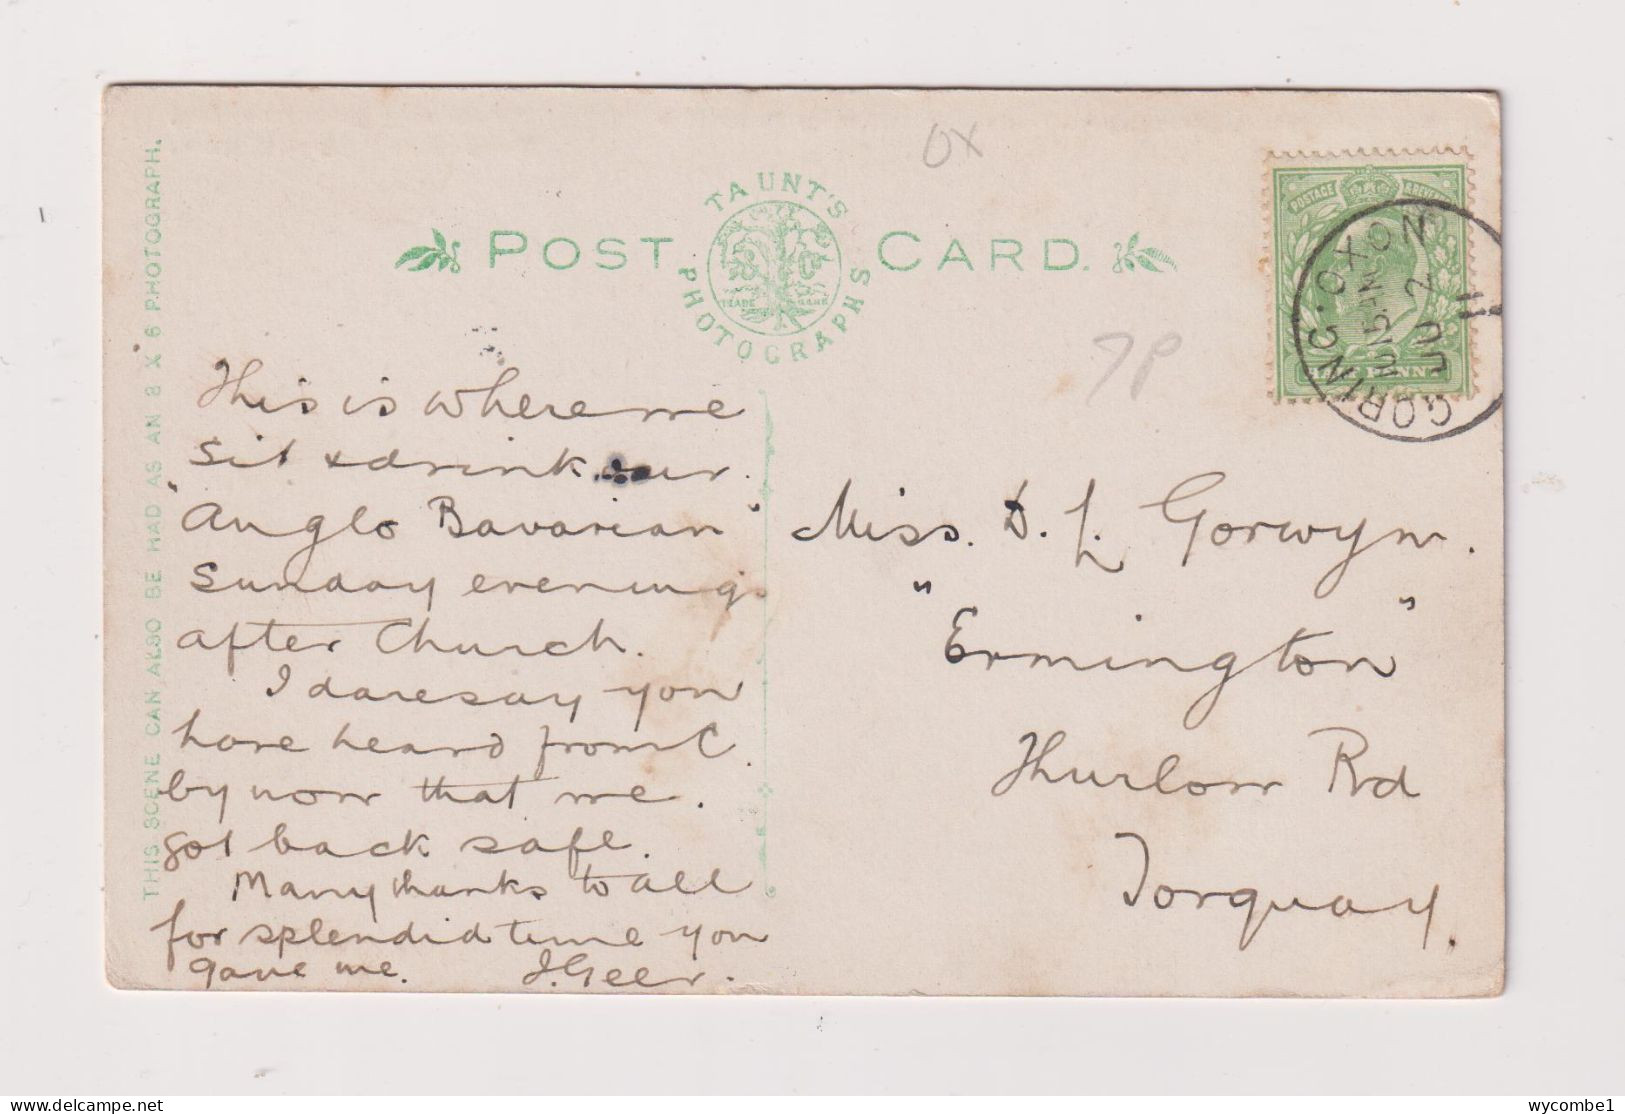 THIS SCENE CAN ALSO BE HAD AS AN 8 X 6 PHOTOGRAPH.
POST CARD.
TAUNT'S PHOTOGRAPHS
TRADE MARK
OX
7P
POSTAGE & REVENUE
HALF PENNY
GORING. OXON
JU 2
11
This is where we
sit & drink our
"Anglo Bavarian"
Sunday evening
after Church.
I daresay you
have heard from C.
by now that we
got back safe.
Many thanks to all
for splendid time you
gave me. J. Geer.
Miss. D. L. Gorwyn.
"Ermington"
Thurlow Rd
Torquay.
wycombe1